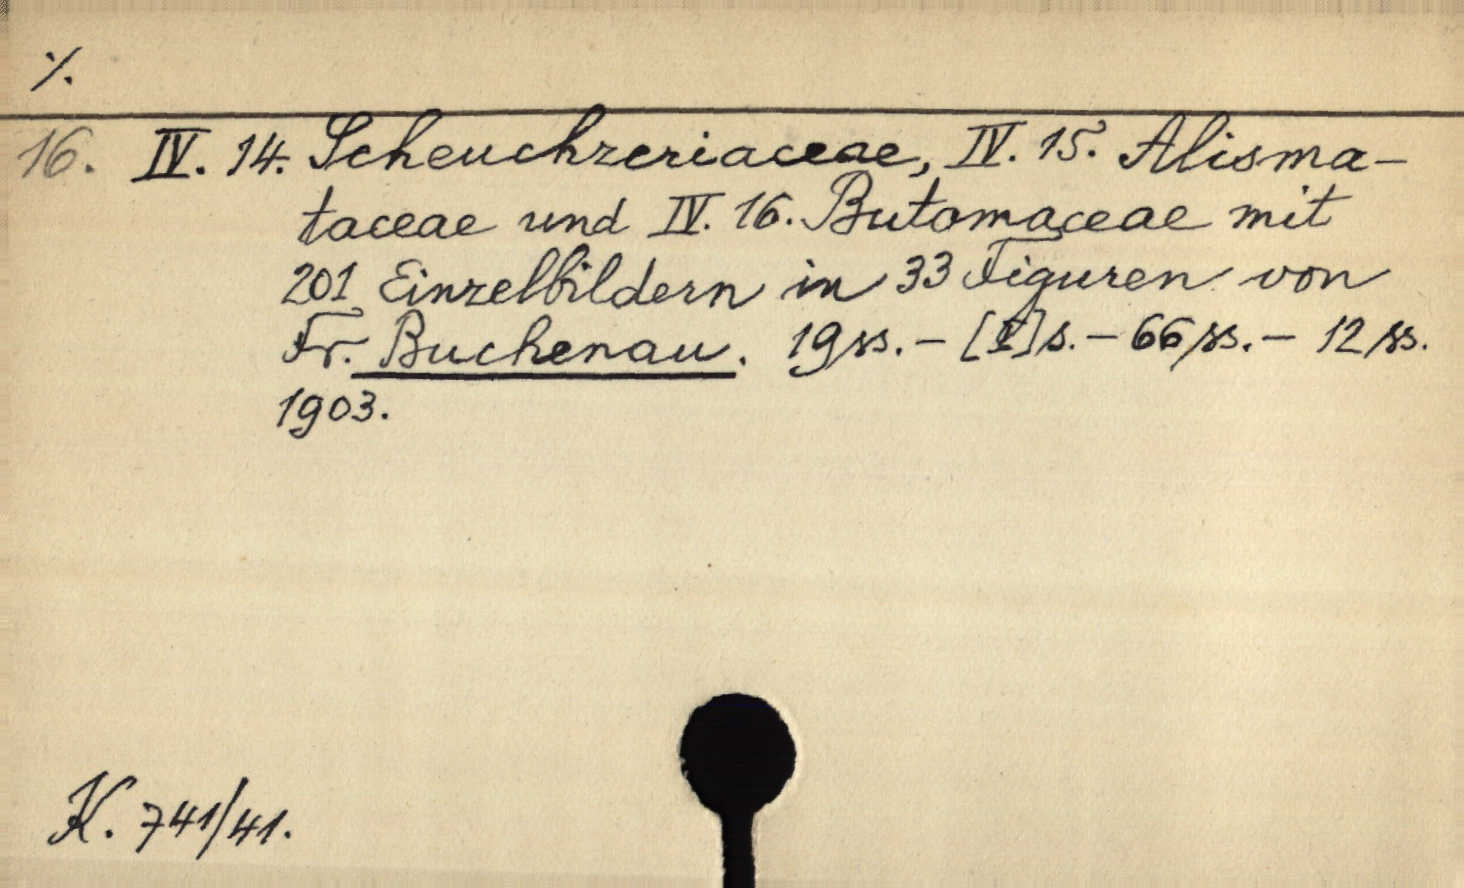 ·/.
16. IV. 14. Scheuchzeriaceae, IV. 15. Alisma-
taceae und IV. 16. Butomaceae mit
201 Einzelbildern in 33 Figuren von
Fr. Buchenau. 19 ss. – [1] s. – 66 ss. – 12 ss.
1903.
K. 741/41.